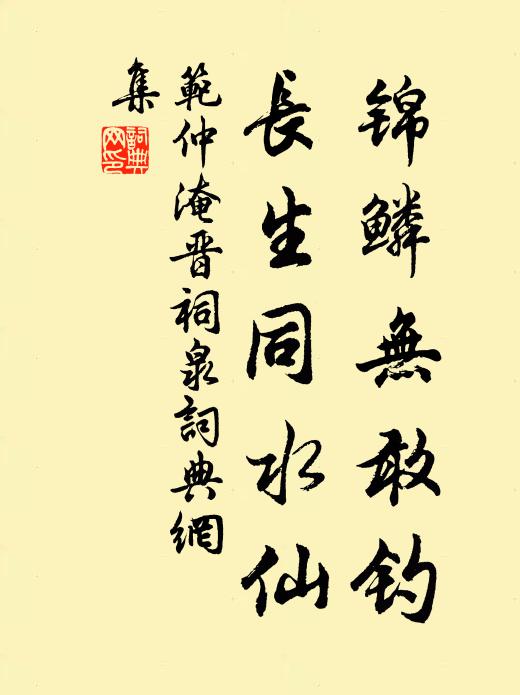 锦鳞無敢钓
長生同水仙
範仲淹晋祠泉詞典網
集
詞典網印